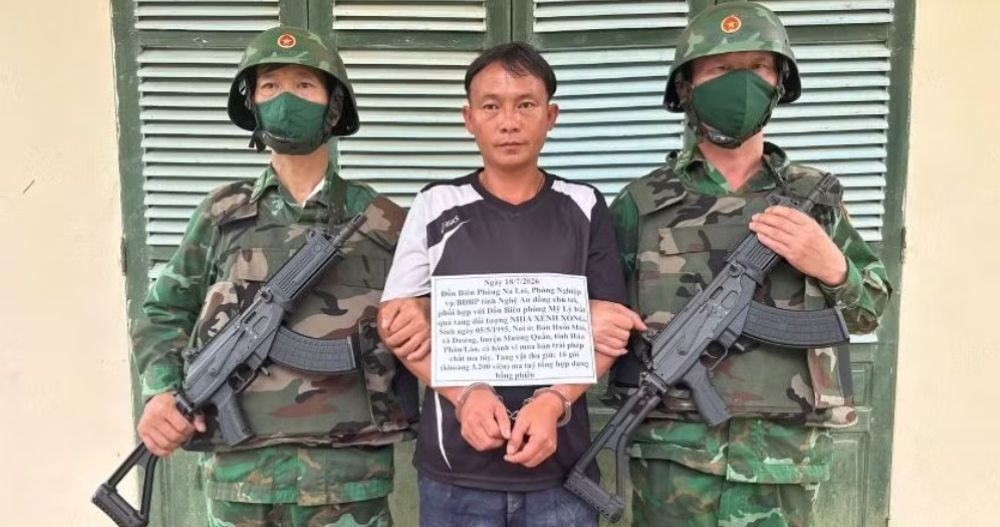 asics
Ngày 18/7/2026
Đồn Biên Phòng Na Loi, Phòng Nghiệp
vụ/BĐBP tỉnh Nghệ An đồng chủ trì,
phối hợp với Đồn Biên phòng Mỹ Lý bắt
quả tang đối tượng NHIA XÊNH XÔNG,
Sinh ngày 05/5/1995, Nơi ở: Bản Huổi Mai,
xã Dương, huyện Mường Quắn, tỉnh Hủa
Phăn/Lào, có hành vi mua bán trái phép
chất ma túy. Tang vật thu giữ: 16 gói
(khoảng 3.200 viên) ma tuý tổng hợp dạng
hồng phiến